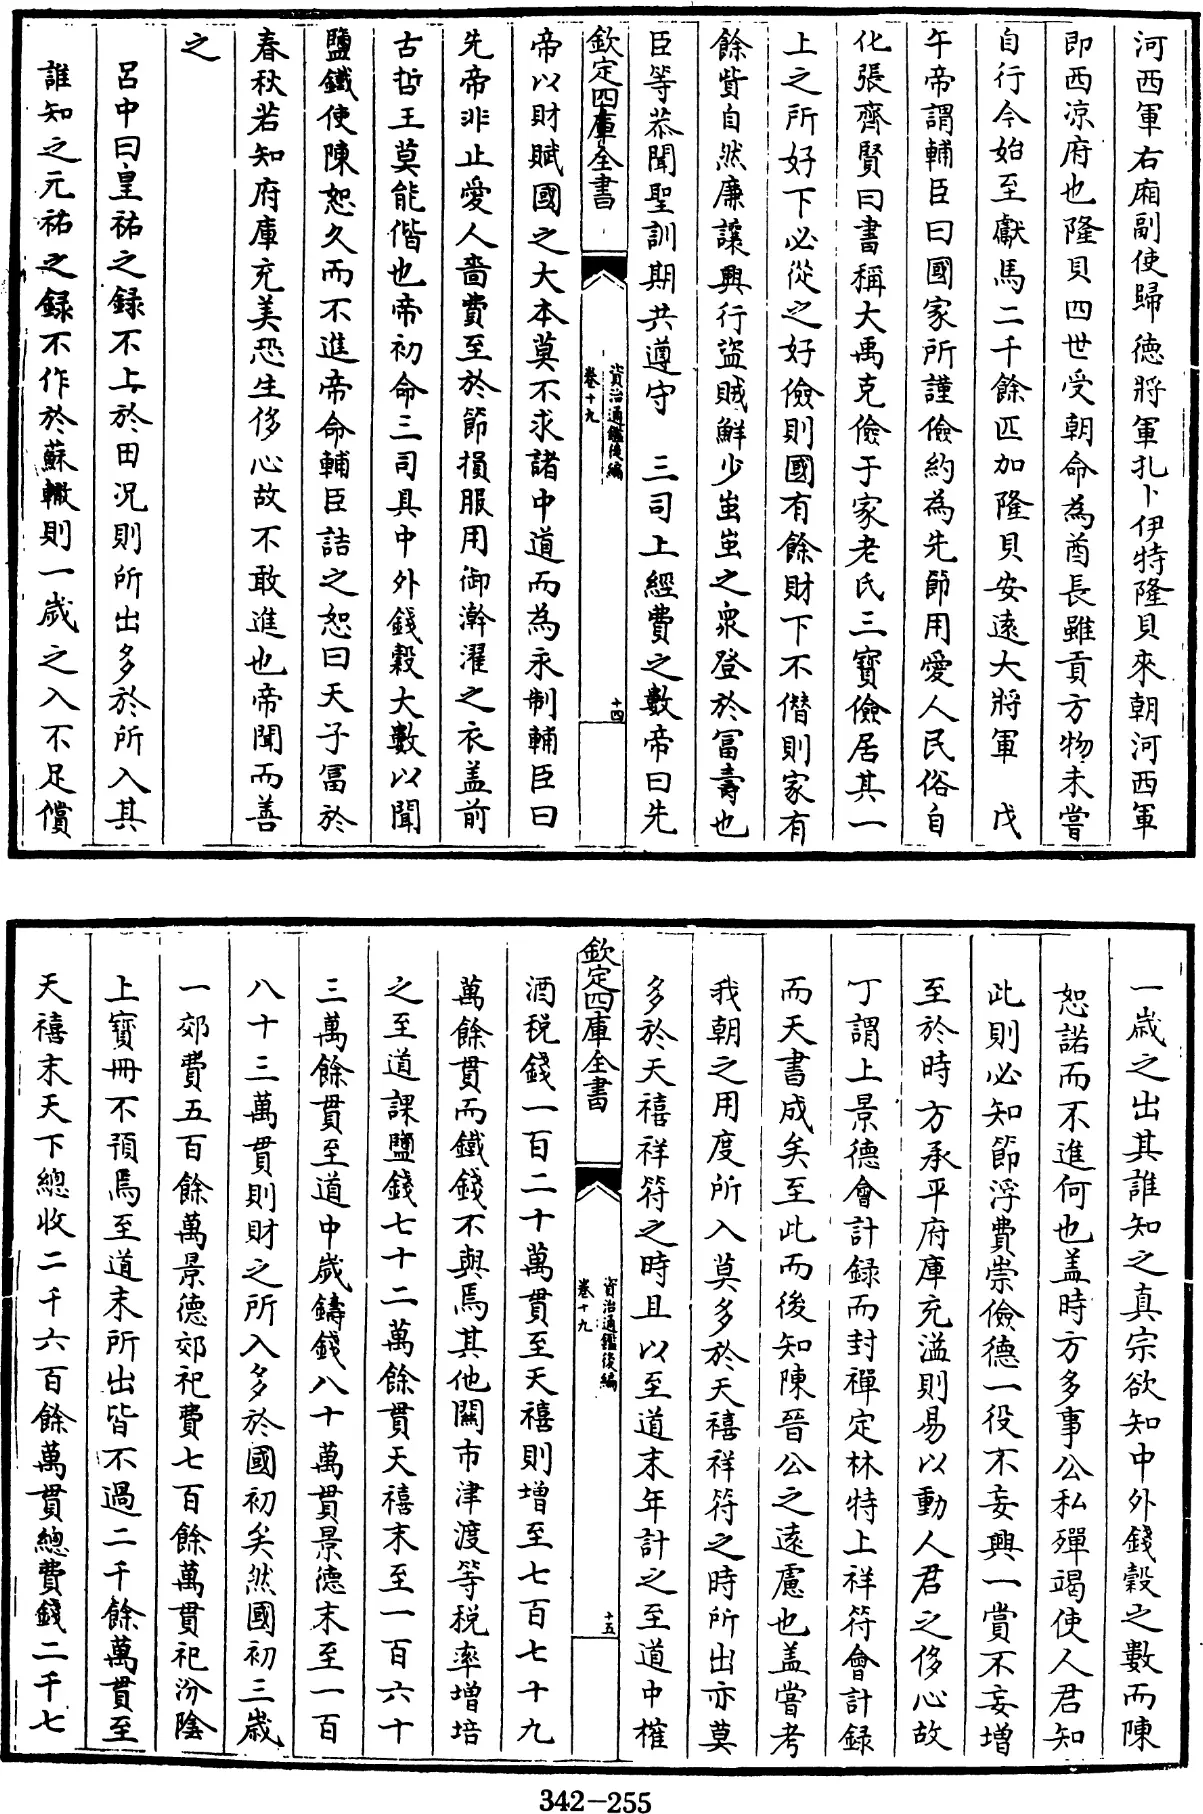 河西軍右廂副使歸德將軍扎卜伊特隆貝來朝河西軍
即西凉府也隆貝四世受朝命為酋長雖貢方物未嘗
自行今始至獻馬二千餘匹加隆貝安遠大將軍　戊
午帝謂輔臣曰國家所謹儉約為先節用愛人民俗自
化張齊賢曰書稱大禹克儉于家老氏三寳儉居其一
上之所好下必從之好儉則國有餘財下不僭則家有
餘貲自然廉讓興行盜賊鮮少蚩蚩之衆登於富壽也
臣等恭聞聖訓期共遵守　三司上經費之數帝曰先
欽定四庫全書
資治通鑑後編
卷十九
十四
帝以財賦國之大本莫不求諸中道而為永制輔臣曰
先帝非止愛人嗇費至於節損服用御澣濯之衣盖前
古哲王莫能偕也帝初命三司具中外錢穀大數以聞
鹽鐵使陳恕久而不進帝命輔臣詰之恕曰天子富於
春秋若知府庫充羙恐生侈心故不敢進也帝聞而善
之
吕中曰皇祐之録不上於田况則所出多於所入其
誰知之元祐之録不作於蘇轍則一歲之入不足償
一歲之出其誰知之真宗欲知中外錢穀之數而陳
恕諾而不進何也盖時方多事公私殫竭使人君知
此則必知節浮費崇儉德一役不妄興一賞不妄増
至於時方承平府庫充溢則易以動人君之侈心故
丁謂上景德會計録而封禪定林特上祥符會計録
而天書成矣至此而後知陳晉公之遠慮也盖嘗考
我朝之用度所入莫多於天禧祥符之時所出亦莫
多於天禧祥符之時且以至道末年計之至道中榷
欽定四庫全書
資治通鑑後編
卷十九
十五
酒稅錢一百二十萬貫至天禧則増至七百七十九
萬餘貫而鐵錢不與焉其他關市津渡等稅率增培
之至道課鹽錢七十二萬餘貫天禧末至一百六十
三萬餘貫至道中歲鑄錢八十萬貫景德末至一百
八十三萬貫則財之所入多於國初矣然國初三歲
一郊費五百餘萬景德郊祀費七百餘萬貫祀汾陰
上寳冊不預焉至道末所出皆不過二千餘萬貫至
天禧末天下總收二千六百餘萬貫總費錢二千七
342-255